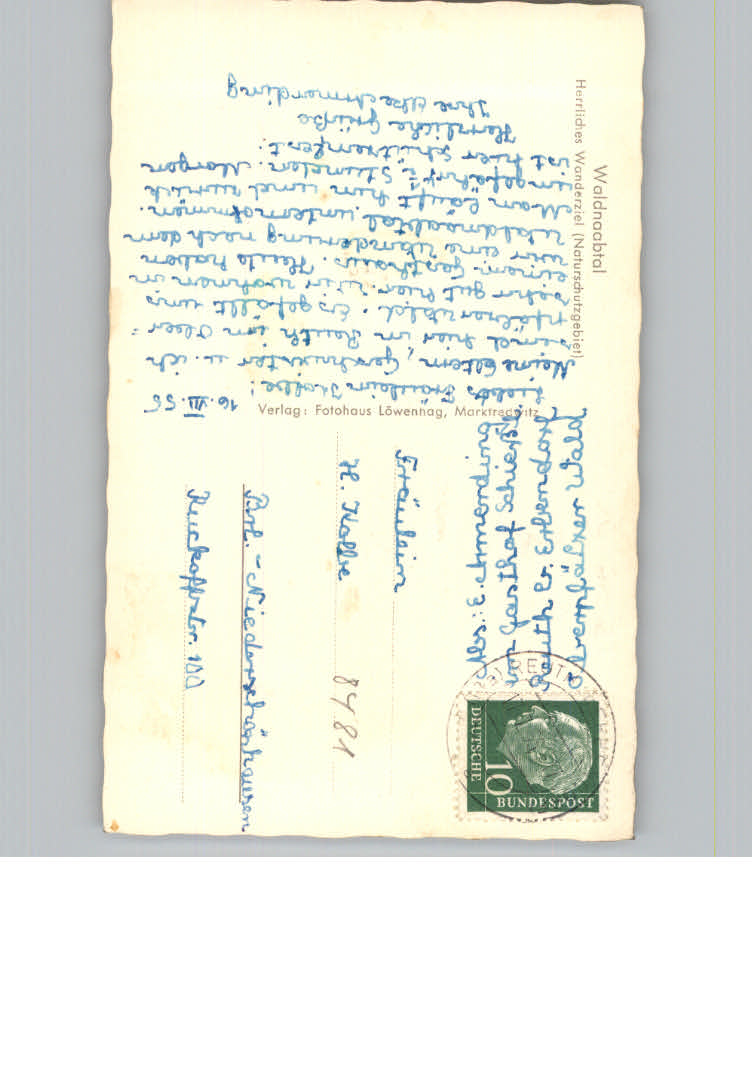 Waldnaabtal
Herrliches Wanderziel (Naturschutzgebiet)
16. VII. 55
Liebes Fräulein Kolbe!
Meine Eltern, Geschwister u. ich
sind hier in Reuth im Ober=
pfälzerwald. Es gefällt uns
sehr gut hier. Wir wohnen in
einem Gasthaus. Heute haben
wir eine Wanderung nach dem
Waldnaabtal unternommen.
Man läuft hin und zurück
ungefähr 4 Stunden. Morgen
ist hier Schützenfest.
Herzliche Grüße
Ihre
Verlag: Fotohaus Löwenhag, Marktredwitz
Abs.: E.
Gasthof
Reuth b. Erbendorf
Oberpfälzer Wald
REUTH
DEUTSCHE
BUNDESPOST
10
Fräulein
H. Kolbe
8481
Bln. - Niederschönhausen